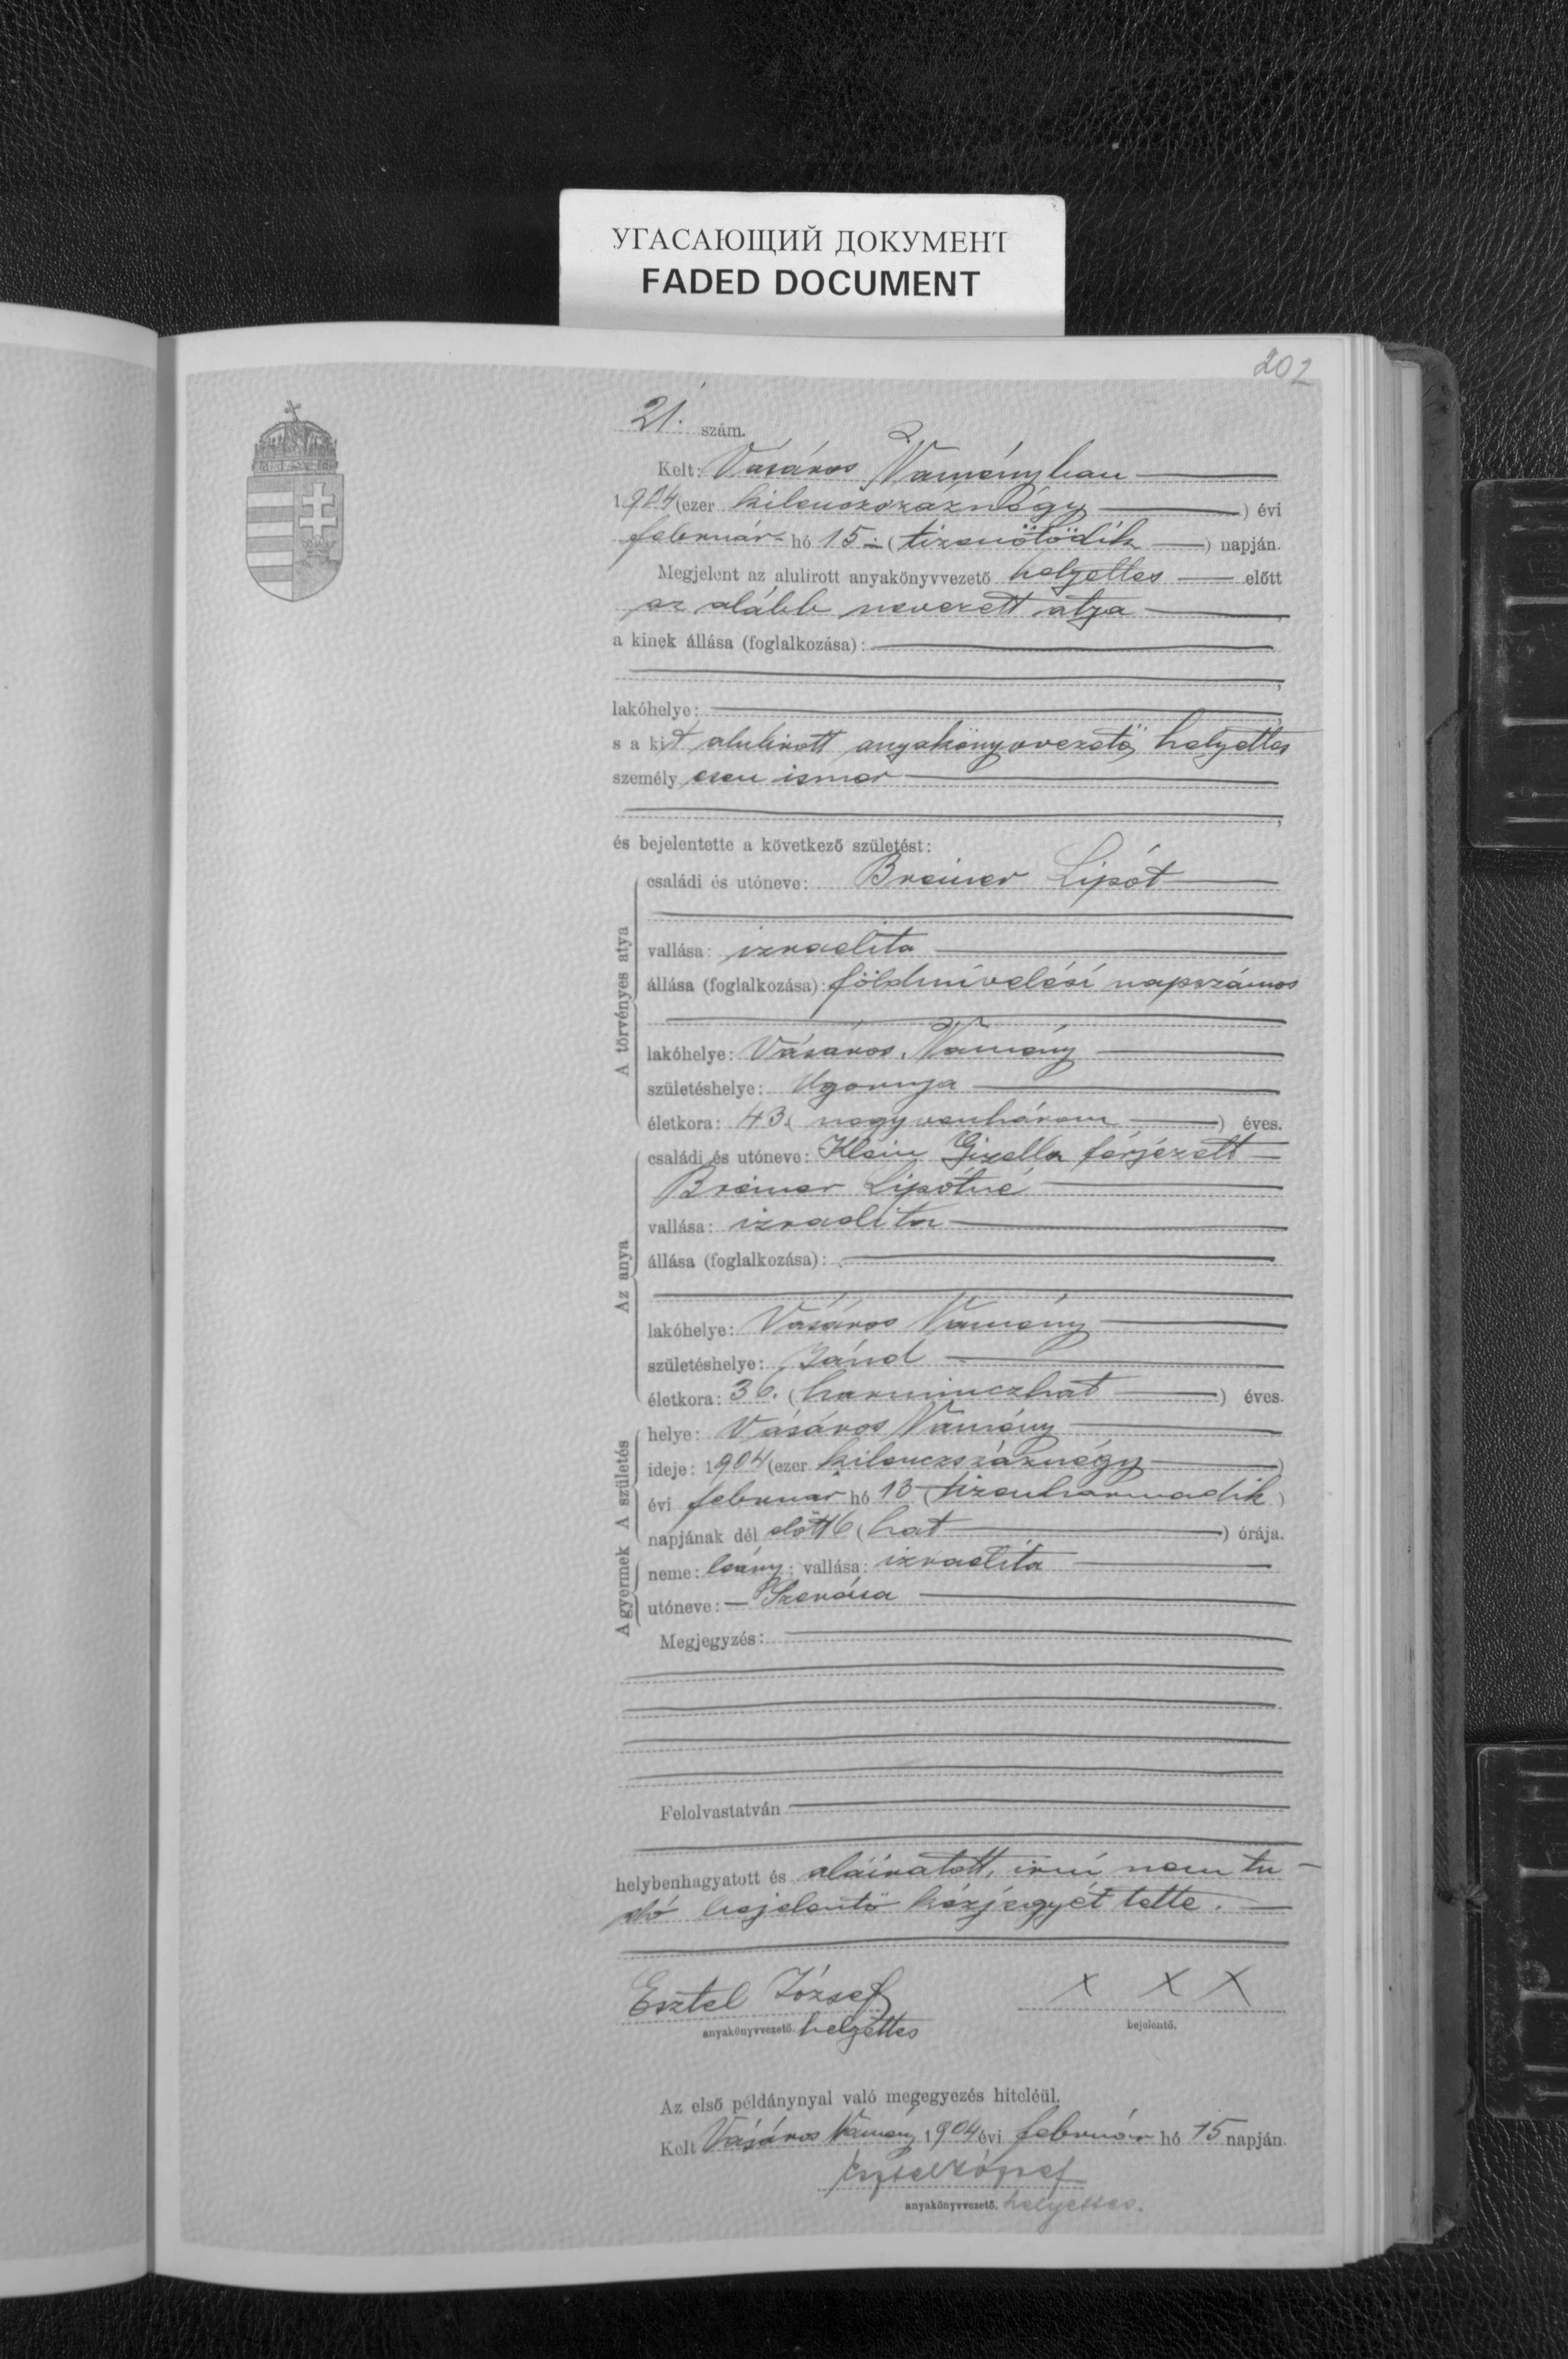 УГАСАЮЩИЙ ДОКУМЕНТ
FADED DOCUMENT
202
21. szám.
Kelt: Vásáros Naményban
1904 (ezer kilenczszáznégy) évi
február hó 15 (tizenötödik) napján.
Megjelent az alulirott anyakönyvvezető helyettes előtt
az alább nevezett atya
a kinek állása (foglalkozása):
lakóhelye:
s a kit alulirott anyakönyvvezető helyettes
személyesen ismer
és bejelentette a következő születést:
A törvényes atya
családi és utóneve: Breiner Lipót
vallása: izraelita
állása (foglalkozása): földmívelési napszámos
lakóhelye: Vásáros Namény
születéshelye: Ugornya
életkora: 43. (negyvenhárom) éves.
Az anya
családi és utóneve: Klein Gizella férjezett
Breiner Lipótné
vallása: izraelita
állása (foglalkozása):
lakóhelye: Vásáros Namény
születéshelye: Jánd
életkora: 36. (harminczhat) éves.
A születés
helye: Vásáros Namény
ideje: 1904 (ezer kilenczszáznégy)
évi február hó 13 (tizenharmadik)
napjának dél előtt 6 (hat) órája.
A gyermek
neme: leány; vallása: izraelita
utóneve: Szeréna
Megjegyzés:
Felolvastatván
helybenhagyatott és aláiratott, irni nem tu-
dó bejelentő kézjegyét tette.
Esztel József
x x x
anyakönyvvezető. helyettes
bejelentő.
Az első példánynyal való megegyezés hiteléül.
Kelt Vásáros Namény 1904 évi február hó 15 napján.
Esztel József
anyakönyvvezető. helyettes.